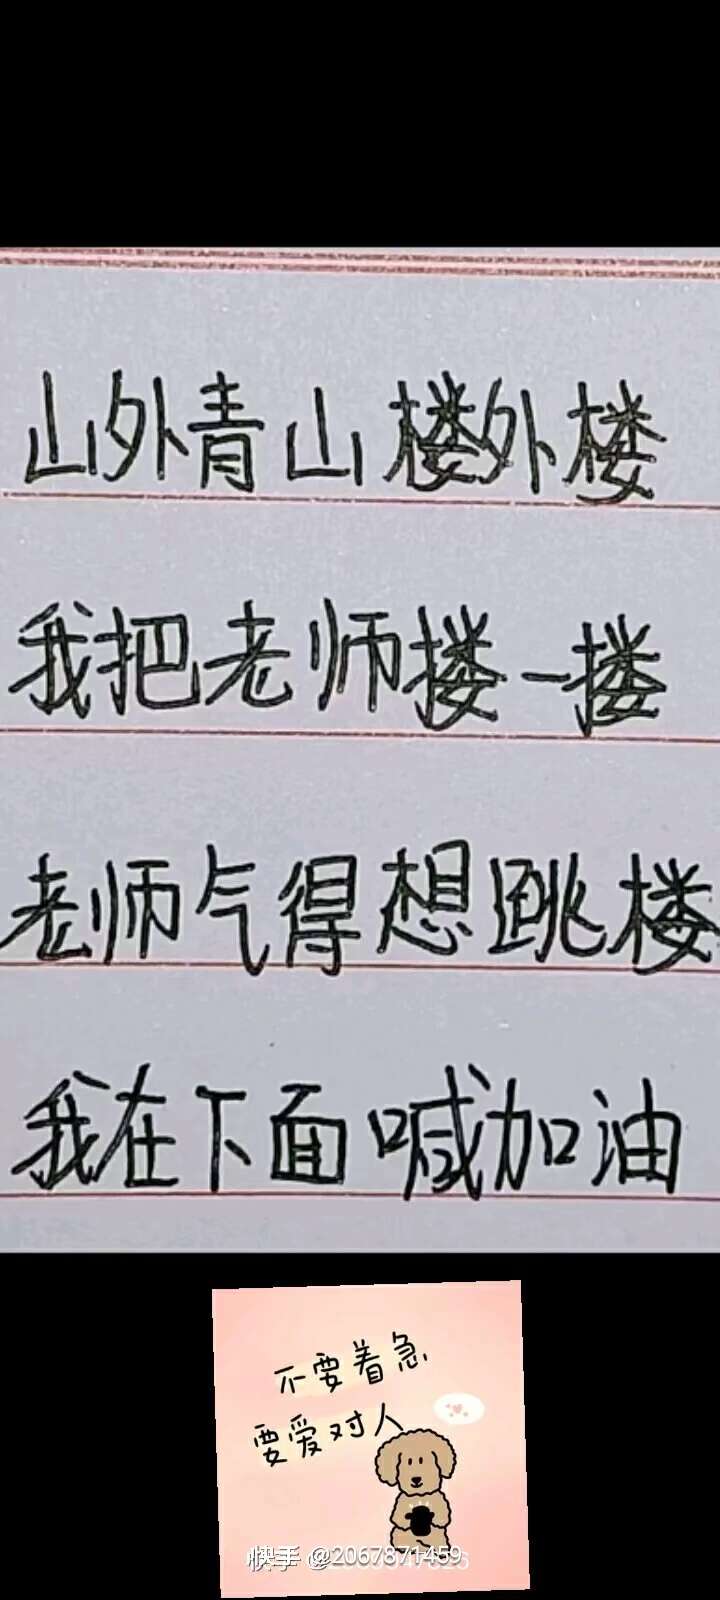 山外青山楼外楼
我把老师搂一搂
老师气得想跳楼
我在下面喊加油
不要着急
要爱对人
快手 @2067871459